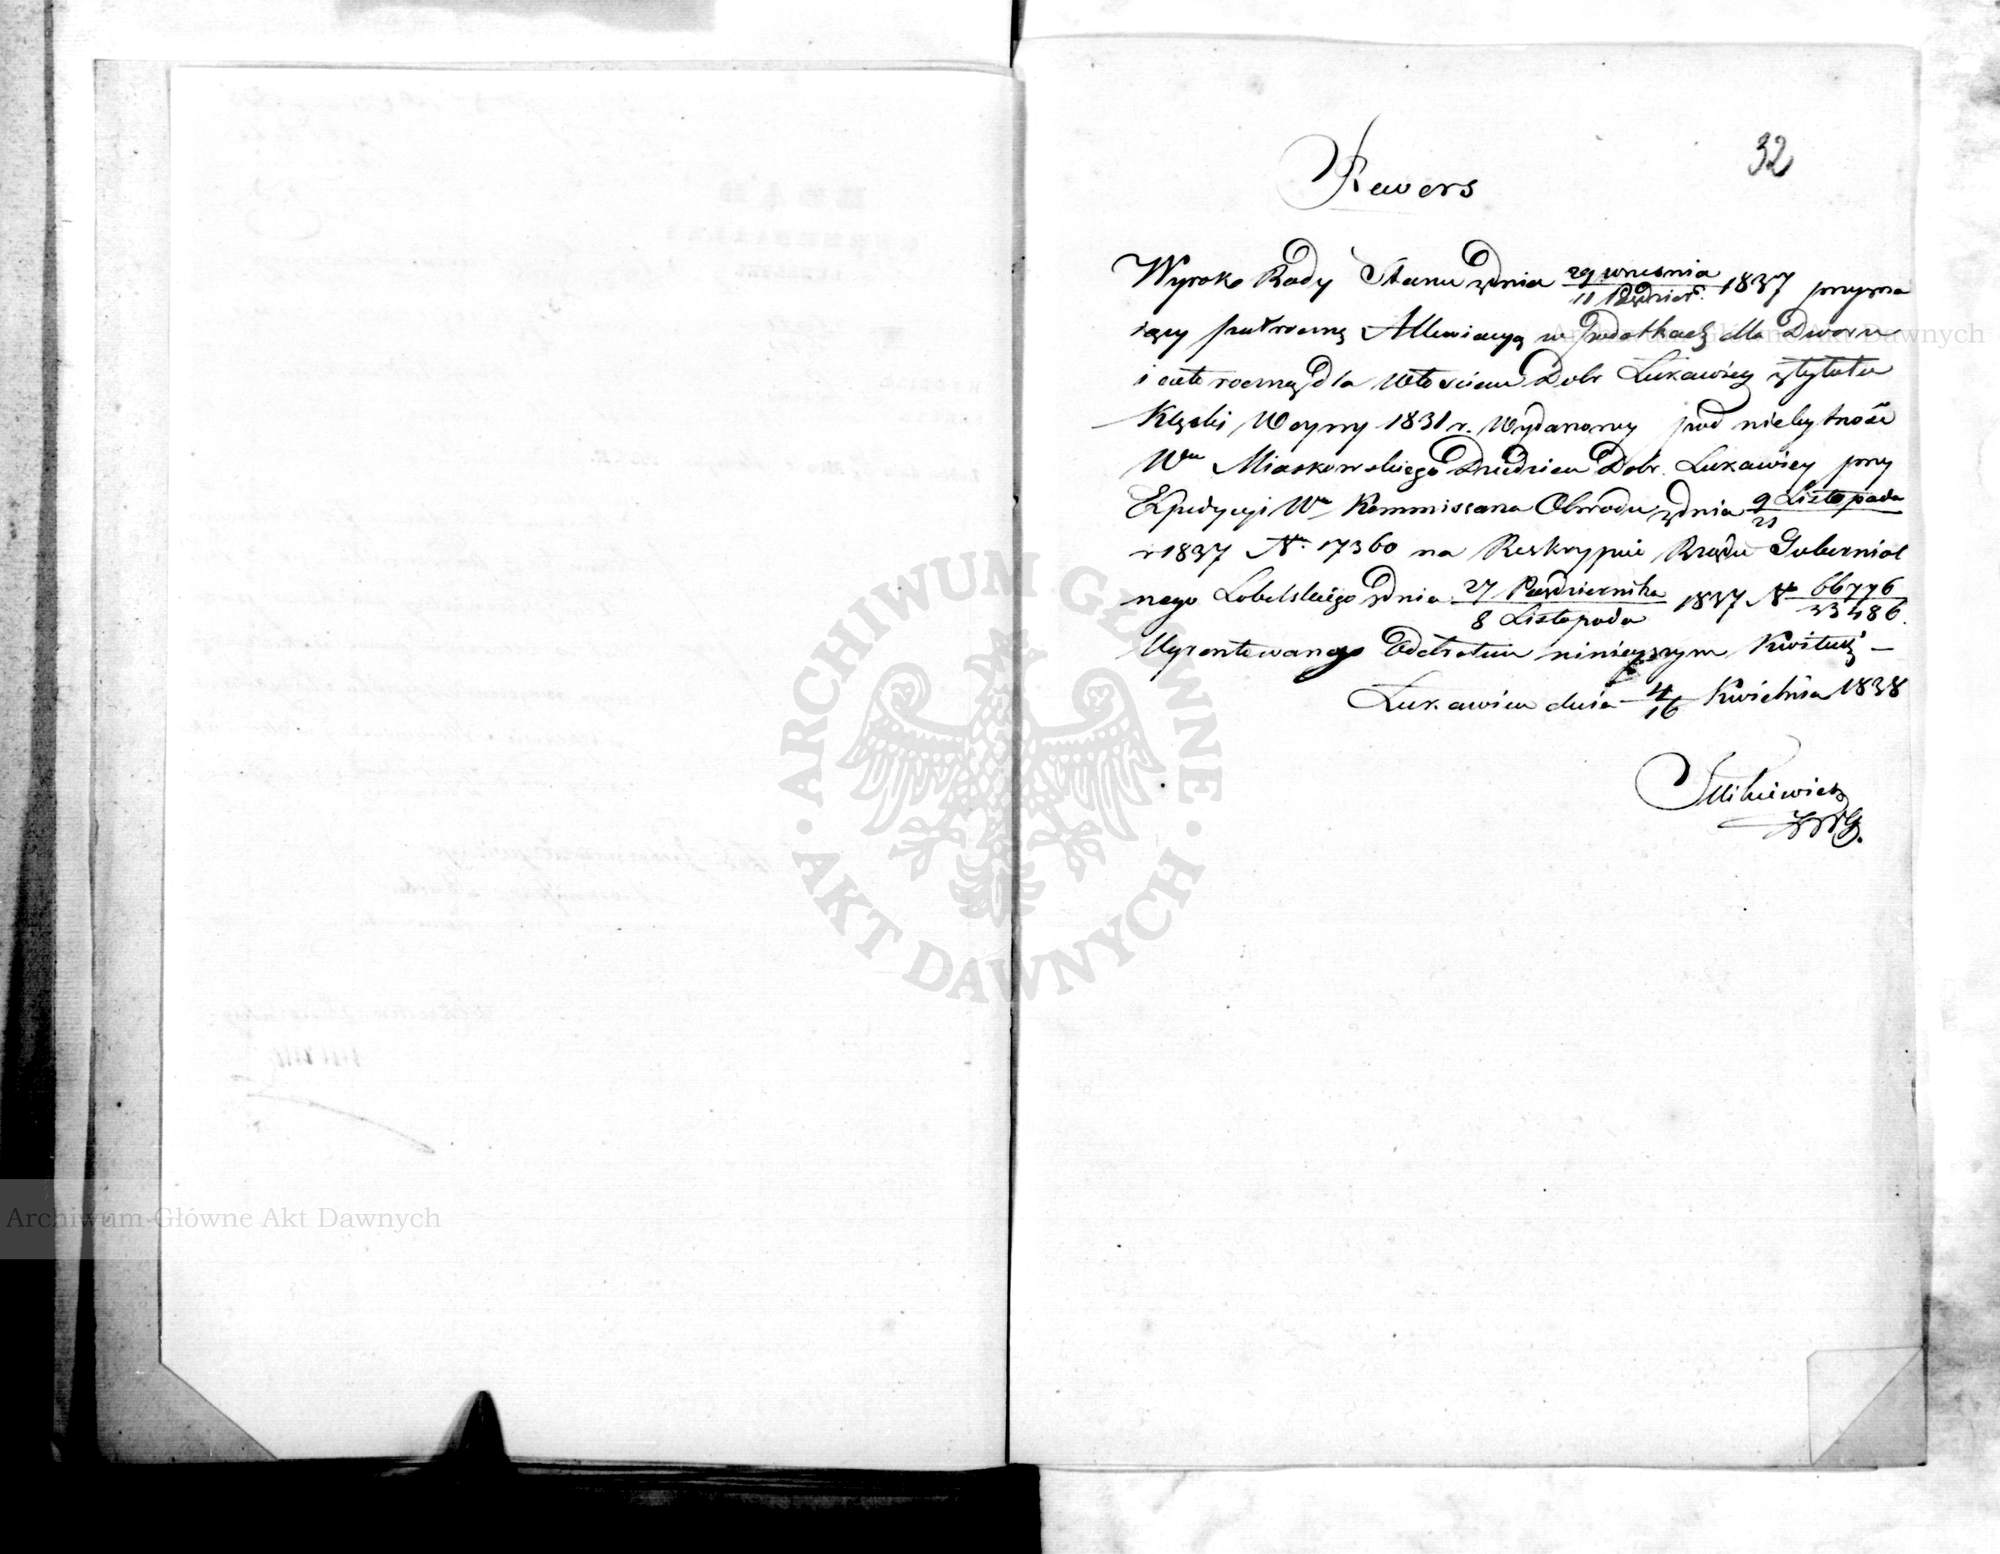 32
Rewers
Wyrok Rady Stanu z dnia 29 września / 11 Paździer. 1837 przyzna
iący półroczną Allewiacyą w podatkach dla Dworu
i cało roczną dla Włościan Dobr Łukawicy z tytułu
Klęski Woyny 1831 r. Wydanowy pod niebytność
Wu Miaskowskiego Dziedzica Dobr Łukawicy przy
Expedycyi Wo Kommissarza Obwodu z dnia 9/21 Listopada
r 1837 Nr. 17360 na Reskrypcie Rządu Gubernial
nego Lubelskiego z dnia 27 Października / 8 Listopada 1837 No 66776/33486.
Odebrałem niniejszym Kwituię —
Łukawica dnia 4/16 Kwietnia 1838
ARCHIWUM GŁÓWNE AKT DAWNYCH
Archiwum Główne Akt Dawnych
Archiwum Główne Akt Dawnych